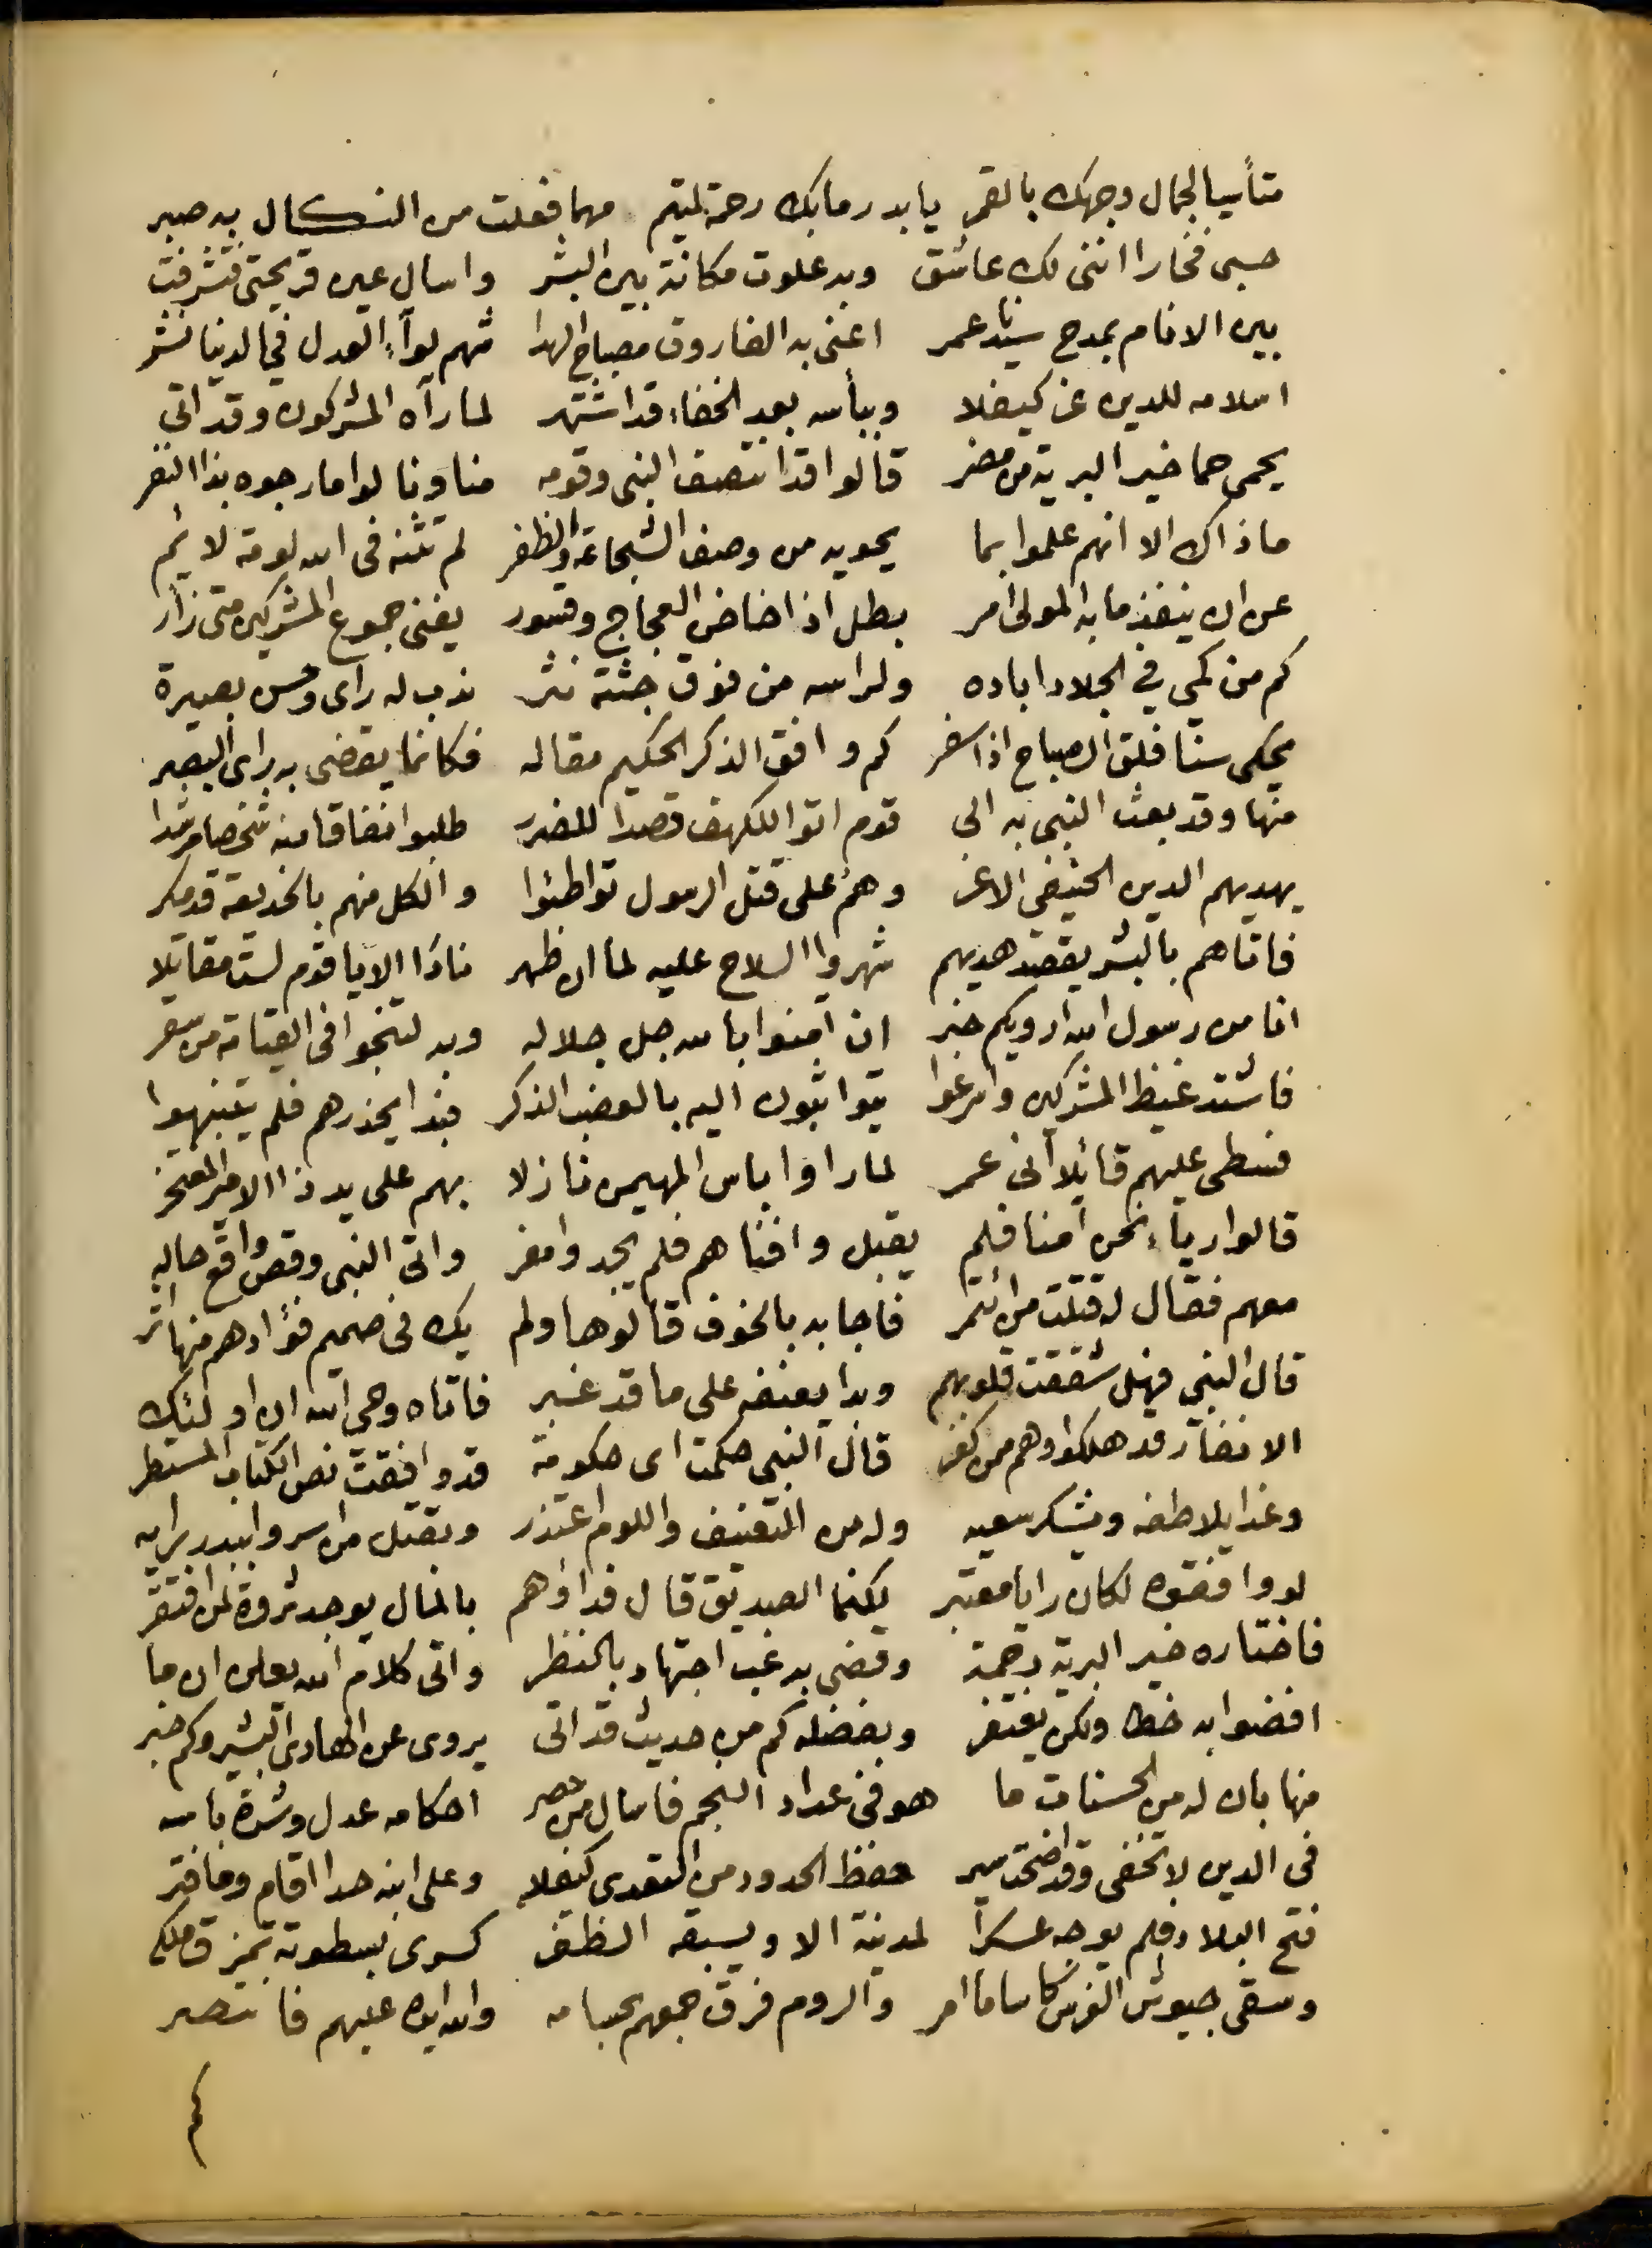 متأسيا لجمال وجهك بالقمر يا بدر ما بك رحمة لمتيم مهما فعلت من النكال به صبر
حسبى فخارا اننى لك عاشق وبه علوت مكانة بين البشر واسال عين قريحتى فتشرفت
بين الانام بمدح سيدنا عمر اعنى به الفاروق مصباح الهدا شهم لوآء العدل فى الدنيا نشر
اسلامه للدين عز كيفلا وببأسه بعد الخفاء قد اشتهر لما رآه المشركون وقد اتى
يحمى حما خير البرية من مضر قالوا قد انتصف النبى وقومه منا ونالوا ما رجوه بذا النفر
ماذاك الا انهم علموا بما يحويه من وصف الشجاعة والظفر لم تثنه فى الله لومة لائم
عن ان ينفذ ما به المولى امر بطل اذا خاض العجاج وقسور يفنى جموع المشركين متى زأر
كم من كمي فى الجلاد اباده ولراسه من فوق جثته نثر ندب له راى وحسن بصيرة
يحكى سنا فلق الصباح اذا سفر كم وافق الذكر الحكيم مقاله فكانما يقضى به راى البصر
منها وقد بعث النبى به الى قوم اتوا للكهف قصدا للضرر طلبوا نفاقا منه شخصا مرشدا
يهديهم الدين الحنيفي الاغر وهم على قتل الرسول تواطئوا والكل منهم بالخديعة قد مكر
فاتاهم بالبشر يقصد هديهم شهروا السلاح عليه لما ان ظهر نادا الا يا قوم لست مقاتلا
انا من رسول الله ارويكم خبر ان آمنوا بالله جل جلاله وبه لتنجوا فى القيامة من سقر
فاشتد غيظ المشركين واسرعوا يتواثبون اليه بالعضب الذكر فبدا يحذرهم فلم يتنبهوا
فسطى عليهم قائلا انى عمر لما راوا باس المهيمن نازلا بهم على يد ذا الامير المفتخر
قالوا رياء نحن آمنا فلم يقبل وافناهم فلم يجدوا مفر واتى النبى وقص واقع حاله
معهم فقال له قتلت من ائتمر فاجابه بالخوف قالوها ولم يك فى صميم فؤادهم منها اثر
قال النبى فهل شققت قلوبهم وبدا يعنفه على ما قد غبر فاتاه وحى الله ان اولئك
الانفار قد هلكوا وهم ممن كفر قال النبى حكمت اى حكومة قد وافقت نص الكتاب المستطر
وغدا يلاطفه ويشكر سعيه وله من التعنيف واللوم اعتذر وبقتل من اسروا ببدر برايه
لو وافقوه لكان رايا معتبر لكنما الصديق قال فداؤهم بالمال يوجد ثروة لمن افتقر
فاختاره خير البرية رحمة وقضى به غب اجتهاد بالنظر واتى كلام الله يعلن ان ما
افضوا به خطا ولكن يغتفر وبفضله كم من حديث قد اتى يروى عن الهادى البشير وكم خبر
منها بان له من الحسنات ما هو فى عداد النجم فاسال من حصر احكامه عدل وشدة باسه
فى الدين لا تخفى وقد اضحت سير حفظ الحدود من التعدى كيفلا وعلى ابنه حدا اقام وما فتر
فتح البلاد فلم يوجه عسكرا لمدينة الا ويسبقه الظفر كسرى بسطوته تمزق ملكه
وسقى جيوش الفرس كاسا ما امر والروم فرق جمعهم بحسامه والله ايده عليهم فانتصر
كم